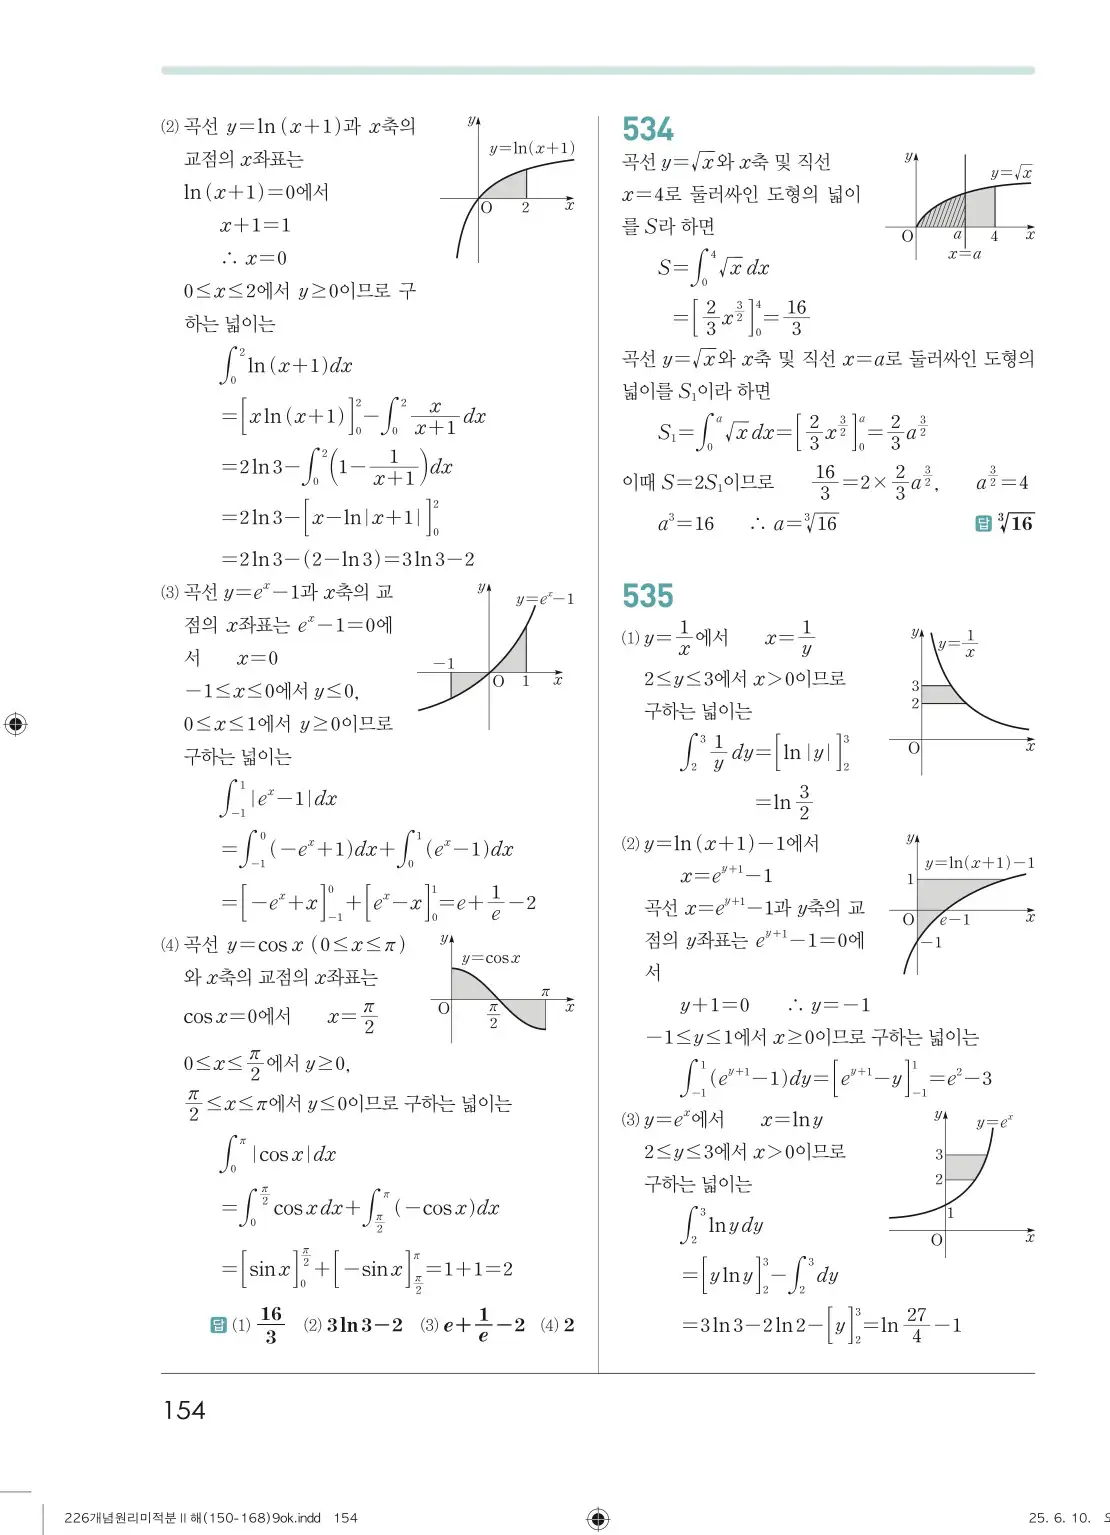 (2) 곡선 y=ln(x+1)과 x축의
교점의 x좌표는
ln(x+1)=0에서
x+1=1
∴ x=0
0≤x≤2에서 y≥0이므로 구
하는 넓이는
∫₀² ln(x+1)dx
=[x ln(x+1)]₀²-∫₀² x/(x+1) dx
=2 ln 3-∫₀²(1-1/(x+1))dx
=2 ln 3-[x-ln|x+1|]₀²
=2 ln 3-(2-ln 3)=3 ln 3-2
y
y=ln(x+1)
O 2 x
(3) 곡선 y=eˣ-1과 x축의 교
점의 x좌표는 eˣ-1=0에
서 x=0
-1≤x≤0에서 y≤0,
0≤x≤1에서 y≥0이므로
구하는 넓이는
∫₋₁¹|eˣ-1|dx
=∫₋₁⁰(-eˣ+1)dx+∫₀¹(eˣ-1)dx
=[-eˣ+x]₋₁⁰+[eˣ-x]₀¹=e+1/e-2
y
y=eˣ-1
-1
O 1 x
(4) 곡선 y=cos x (0≤x≤π)
와 x축의 교점의 x좌표는
cos x=0에서 x=π/2
0≤x≤π/2에서 y≥0,
π/2≤x≤π에서 y≤0이므로 구하는 넓이는
∫₀^π|cos x|dx
=∫₀^(π/2) cos x dx+∫_(π/2)^π(-cos x)dx
=[sin x]₀^(π/2)+[-sin x]_(π/2)^π=1+1=2
y
y=cos x
π
O π/2 x
답 (1) 16/3 (2) 3 ln 3-2 (3) e+1/e-2 (4) 2
534
곡선 y=√x와 x축 및 직선
x=4로 둘러싸인 도형의 넓이
를 S라 하면
S=∫₀⁴√x dx
=[2/3 x^(3/2)]₀⁴=16/3
y
y=√x
O a 4 x
x=a
곡선 y=√x와 x축 및 직선 x=a로 둘러싸인 도형의
넓이를 S₁이라 하면
S₁=∫₀^a √x dx=[2/3 x^(3/2)]₀^a=2/3 a^(3/2)
이때 S=2S₁이므로 16/3=2×2/3 a^(3/2), a^(3/2)=4
a³=16 ∴ a=∛16 답 ∛16
535
(1) y=1/x에서 x=1/y
2≤y≤3에서 x>0이므로
구하는 넓이는
∫₂³ 1/y dy=[ln|y|]₂³
=ln 3/2
y
y=1/x
3
2
O x
(2) y=ln(x+1)-1에서
x=e^(y+1)-1
곡선 x=e^(y+1)-1과 y축의 교
점의 y좌표는 e^(y+1)-1=0에
서
y+1=0 ∴ y=-1
-1≤y≤1에서 x≥0이므로 구하는 넓이는
∫₋₁¹(e^(y+1)-1)dy=[e^(y+1)-y]₋₁¹=e²-3
y
y=ln(x+1)-1
1
O e-1 x
-1
(3) y=eˣ에서 x=ln y
2≤y≤3에서 x>0이므로
구하는 넓이는
∫₂³ ln y dy
=[y ln y]₂³-∫₂³dy
=3 ln 3-2 ln 2-[y]₂³=ln 27/4-1
y
y=eˣ
3
2
1
O x
154
226개념원리미적분Ⅱ해(150-168)9ok.indd 154
25. 6. 10.